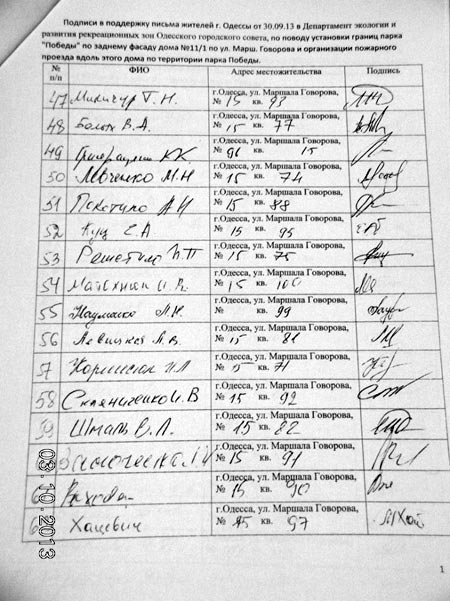 Подписи в поддержку письма жителей г. Одессы от 30.09.13 в Департамент экологии и
развития рекреационных зон Одесского городского совета, по поводу установки границ парка
"Победы" по заднему фасаду дома №11/1 по ул. Марш. Говорова и организации пожарного
проезда вдоль этого дома по территории парка Победы.
№ п/п ФИО Адрес местожительства Подпись
47 Т. Н. г.Одесса, ул. Маршала Говорова, № 15 кв. 93
48 В. А. г.Одесса, ул. Маршала Говорова, № 15 кв. 77
49 К.К. г.Одесса, ул. Маршала Говорова, № кв. 15
50 М.Н г.Одесса, ул. Маршала Говорова, № 15 кв. 74
51 г.Одесса, ул. Маршала Говорова, № 15 кв. 88
52 Куц Е.А. г.Одесса, ул. Маршала Говорова, № 15 кв. 95
53 Решетило г.Одесса, ул. Маршала Говорова, № 15 кв. 75
54 г.Одесса, ул. Маршала Говорова, № 15 кв. 100
55 Науменко г.Одесса, ул. Маршала Говорова, № кв. 99
56 Левицкая г.Одесса, ул. Маршала Говорова, № 15 кв. 81
57 г.Одесса, ул. Маршала Говорова, № 15 кв. 71
58 Скляниченко И.В г.Одесса, ул. Маршала Говорова, № 15 кв. 92
59 Шмаль В.Л. г.Одесса, ул. Маршала Говорова, № 15 кв. 82
г.Одесса, ул. Маршала Говорова, № 15 кв. 91
г.Одесса, ул. Маршала Говорова, № 15 кв. 90
Хацевич г.Одесса, ул. Маршала Говорова, № 15 кв. 97
03.10.2013
1